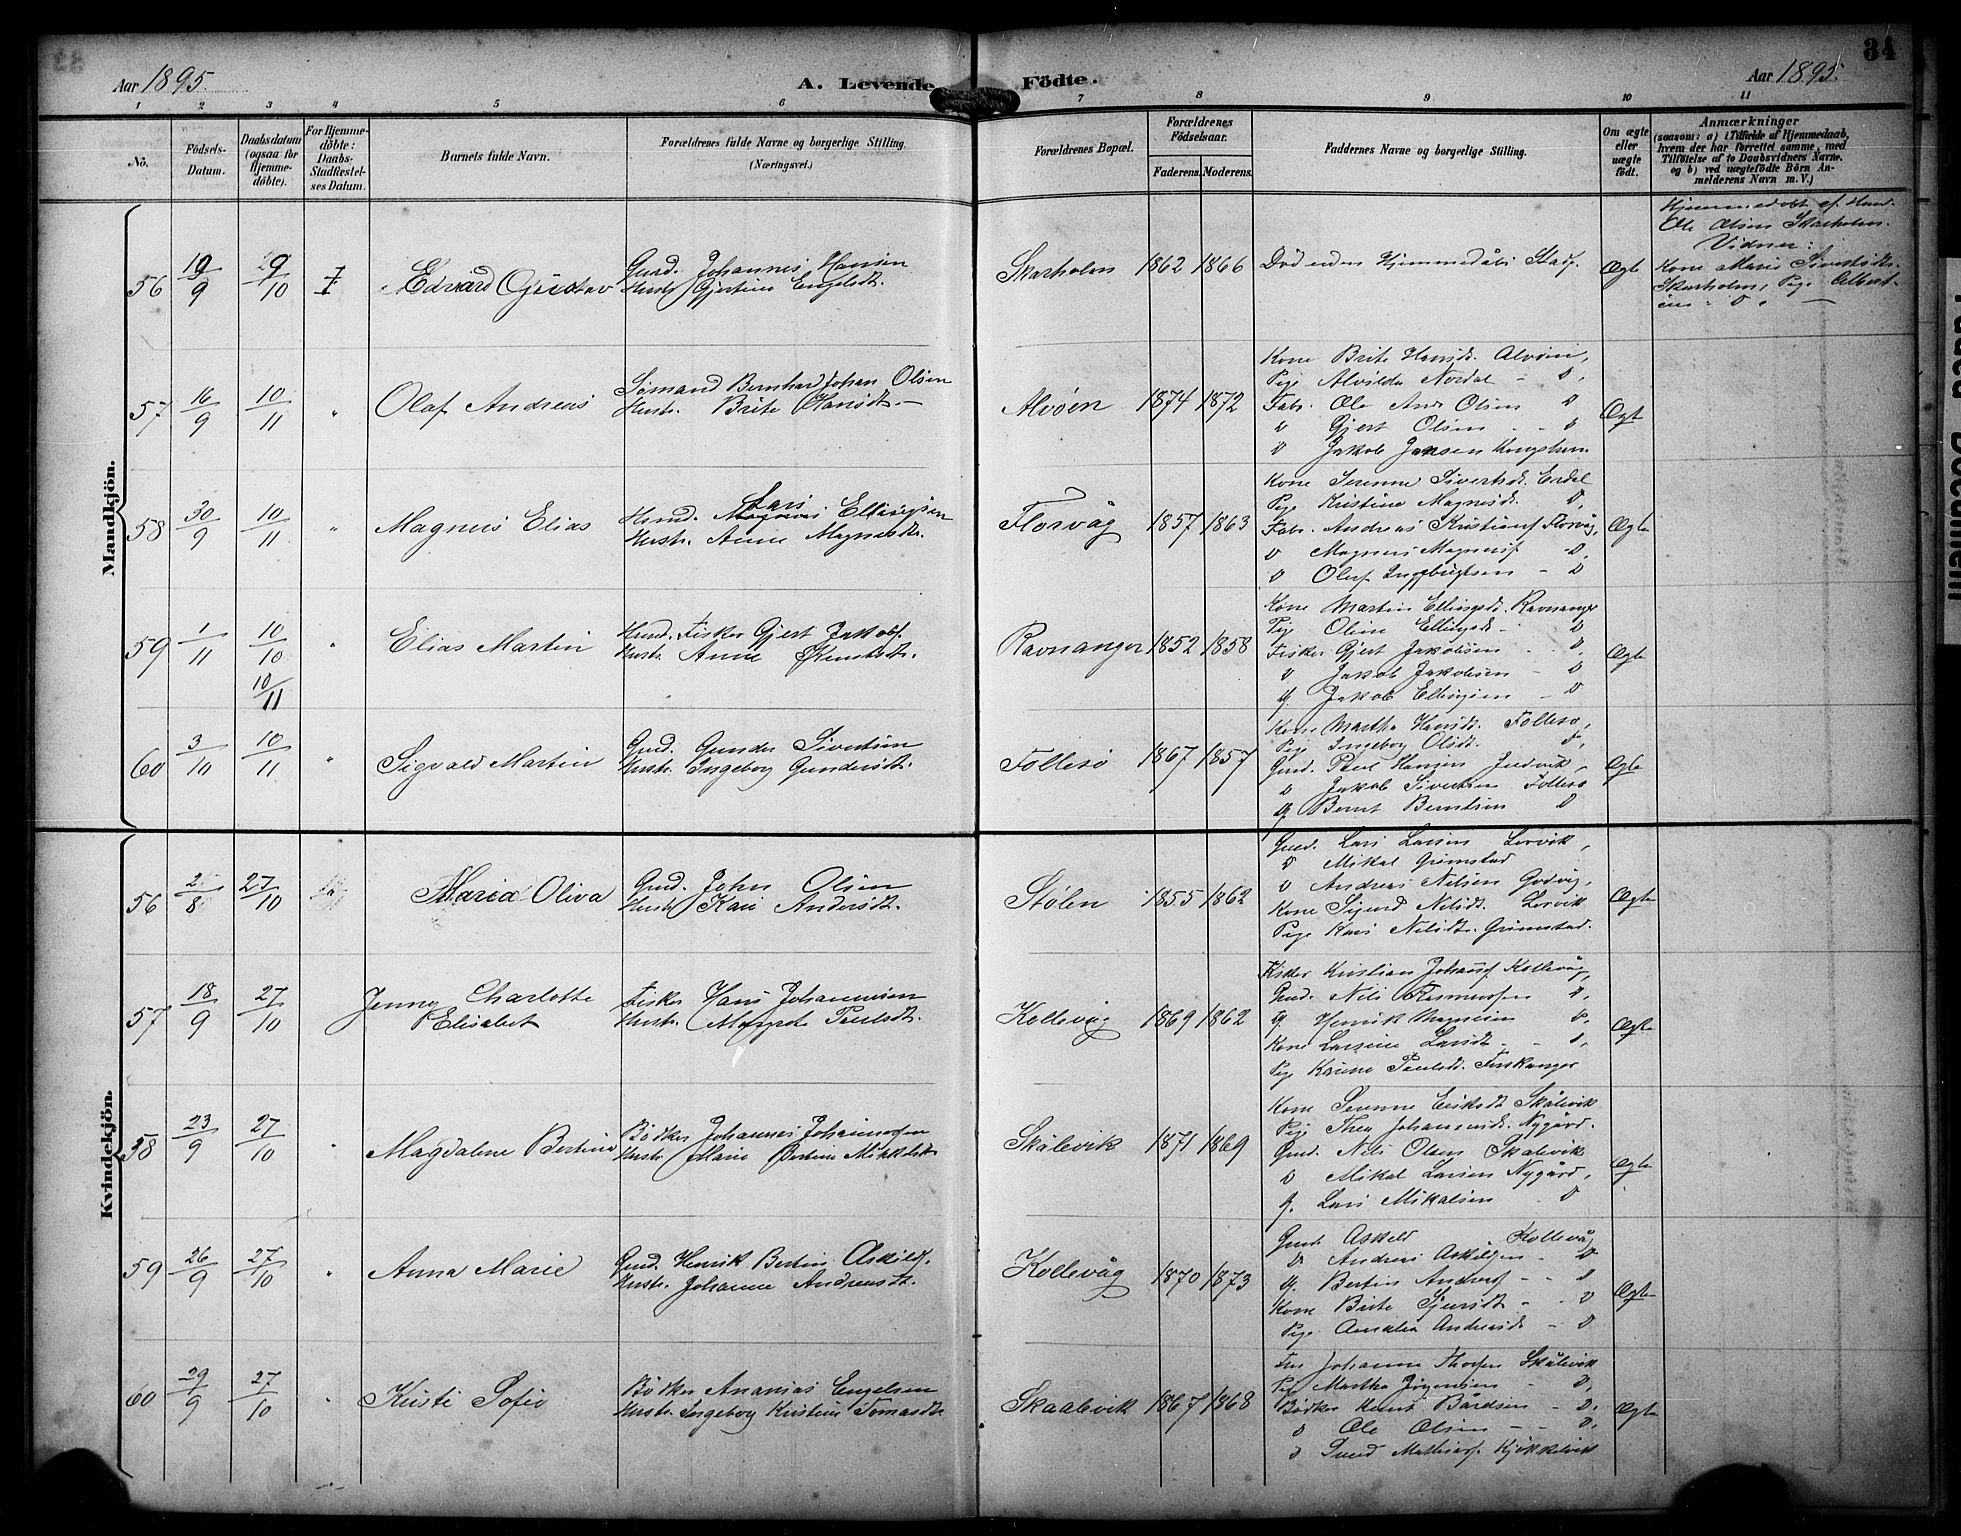 34
Aar 1895.
A. Levende Födte.
Aar 1895.
1 2 3 4 5 6 7 8 9 10 11
No.
Födsels-
Datum.
Daabsdatum
(ogsaa for
Hjemme-
döbte).
For Hjemme-
döbte:
Daabs-
Stadfæstel-
ses Datum.
Barnets fulde Navn.
Forældrenes fulde Navne og borgerlige Stilling.
(Næringsvei.)
Forældrenes Bopæl.
Forældrenes
Födselsaar.
Faderens. Moderens.
Faddernes Navne og borgerlige Stilling.
Om ægte
eller
uægte
födt.
Anmærkninger
(saasom: a) i Tilfælde af Hjemmedaab,
hvem der har forrettet samme, med
Tilföielse af to Daabsvidners Navne,
og b) ved uægtefödte Börn An-
melderens Navn m. V.)
Mandkjön.
56 19/9 29/10 Edvard Gustav
Gmd. Johannes Hansen
Hustr. Gjertine Engelsdt.
Skarholm 1862 1866
Død uden Hjemmedåbs Stadf.
Ægte
Hjemmedøbt af
Ole Olsen Skarholm.
Vidner:
Kone Marie Sivertsdt.
Skarholm, Pige Albert-
ine
57 16/9 10/11 " Olaf Andreas
Sømand Bernhard Johan Olsen
Hustr. Brite Hansdt.
Alvøen 1874 1872
Kone Brite Hansdt. Alvøen,
Pige Alvilda Nordal - D,
Fabr. Ole And. Olsen D
D Gjert Olsen - - D
D Jakob Jansen
Ægte
58 30/9 10/11 " Magnus Elias
Lars
Hmd. Magnus Ellingsen
Hustr. Anne Magnusdtr.
Florvåg 1857 1863
Kone Serenne Sivertsdt. Erdal
Pige Kristine Magnusdt. D,
Fabr. Andreas Kristiansf Florvåg,
D Magnus Magnusf D.
D Oluf Ingebrigtsen - D
Ægte
59 1/11 10/10 " Elias Martin
10/11
Hmd. Fisker Gjert Jakobf.
Hustr. Anne Knutsdt.
Ravnanger 1852 1858
Kone Martin Ellingsdt. Ravnanger
Pige Oline Ellingsdt. D
Fisker Gjert Jakobsen D,
D Jakob Jakobsen - D
G. Jakob Ellingsen - D
Ægte
60 3/10 10/11 " Sigvald Martin
Gmd. Gunder Sivertsen
Hustr. Ingeborg Gundersdt.
Follesø 1867 1857
Kone Martha Hansdt. Follesø,
Pige Ingeborg Olsdt. D,
Gmd. Paul Hansen Juvik,
D Jakob Sivertsen Follesø
G Bernt Berntsen D
Ægte
Kvindekjön.
56 2/8 27/10 Maria Oliva
Gmd. John Olsen
Hustr. Kari Andersdt.
Stølen 1855 1862
Gmd. Lars Larsen Lervik,
D Mikal Grimstad
D Andreas Nilsen Godvig,
Kone Sigurd Nilsdt. Lervik
Pige Kari Nilsdt. Grimstad.
Ægte
57 18/9 27/10 Jenny Charlotte
Elisabet
Fisker Hans Johannesen
Hustr. Margrete Paulsdt.
Kollevåg 1869 1862
Fisker Kristian Johansf Kollevåg,
Gmd. Nils Rasmussen D,
G. Henrik Magnusen D.
Kone Larsine Larsdt. - D,
Pige Karine Paulsdt.
Ægte
58 23/9 27/10 " Magdalene Bertine
Bødker Johannes Johannessen
Hustr. Marie Bertine Mikkelsdt.
Skålevik 1871 1869
Kone Serenne Eriksdt Skålevik
Pige Thea Johannesdt. Nygård.
Gmd. Nils Olsen Skålevik
D Mikal Larsen Nygård,
G. Lars Mikalsen D
Ægte
59 26/9 27/10 " Anna Marie
Gmd. Henrik Bertin Askildf.
Hustr. Johanne Andreasdt.
Kollevåg 1870 1873
Gmd. Askeld Kollevåg
D Andreas Askilsen - D
G. Bertin Andreasf - - D
Kone Brite Sjursdt - - D
Pige Amalia Andreasdt. - D
Ægte
60 29/9 27/10 " Kristi Sofie
Bødker Ananias Engelsen
Hustr. Ingeborg Kristine Tomasdt.
Skaalevik 1867 1868
Fru Johanne Thorsen Skålevik
Pige Martha Jørgensen - D,
Bødker Knut Bårdsen - D,
D Ole Olsen - - D,
D Mathiasf. Kjøkkelvik
Ægte